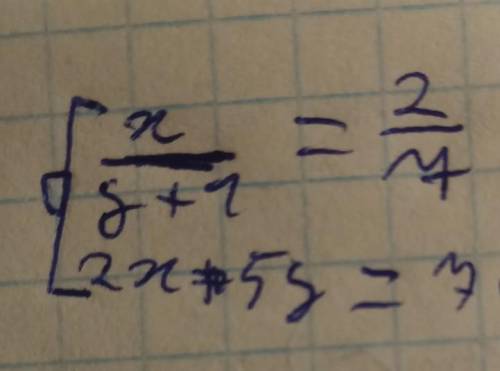 x / y + 1 = 2 / 7
2x + 5y = 7